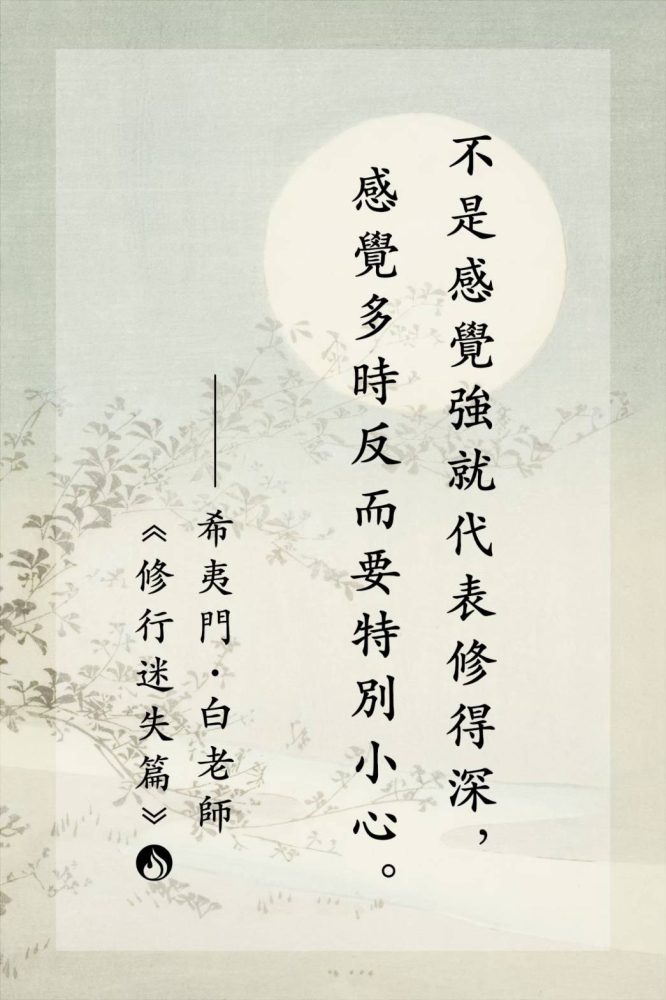 不是感覺強就代表修得深，
感覺多時反而要特別小心。
——希夷門·白老師
《修行迷失篇》